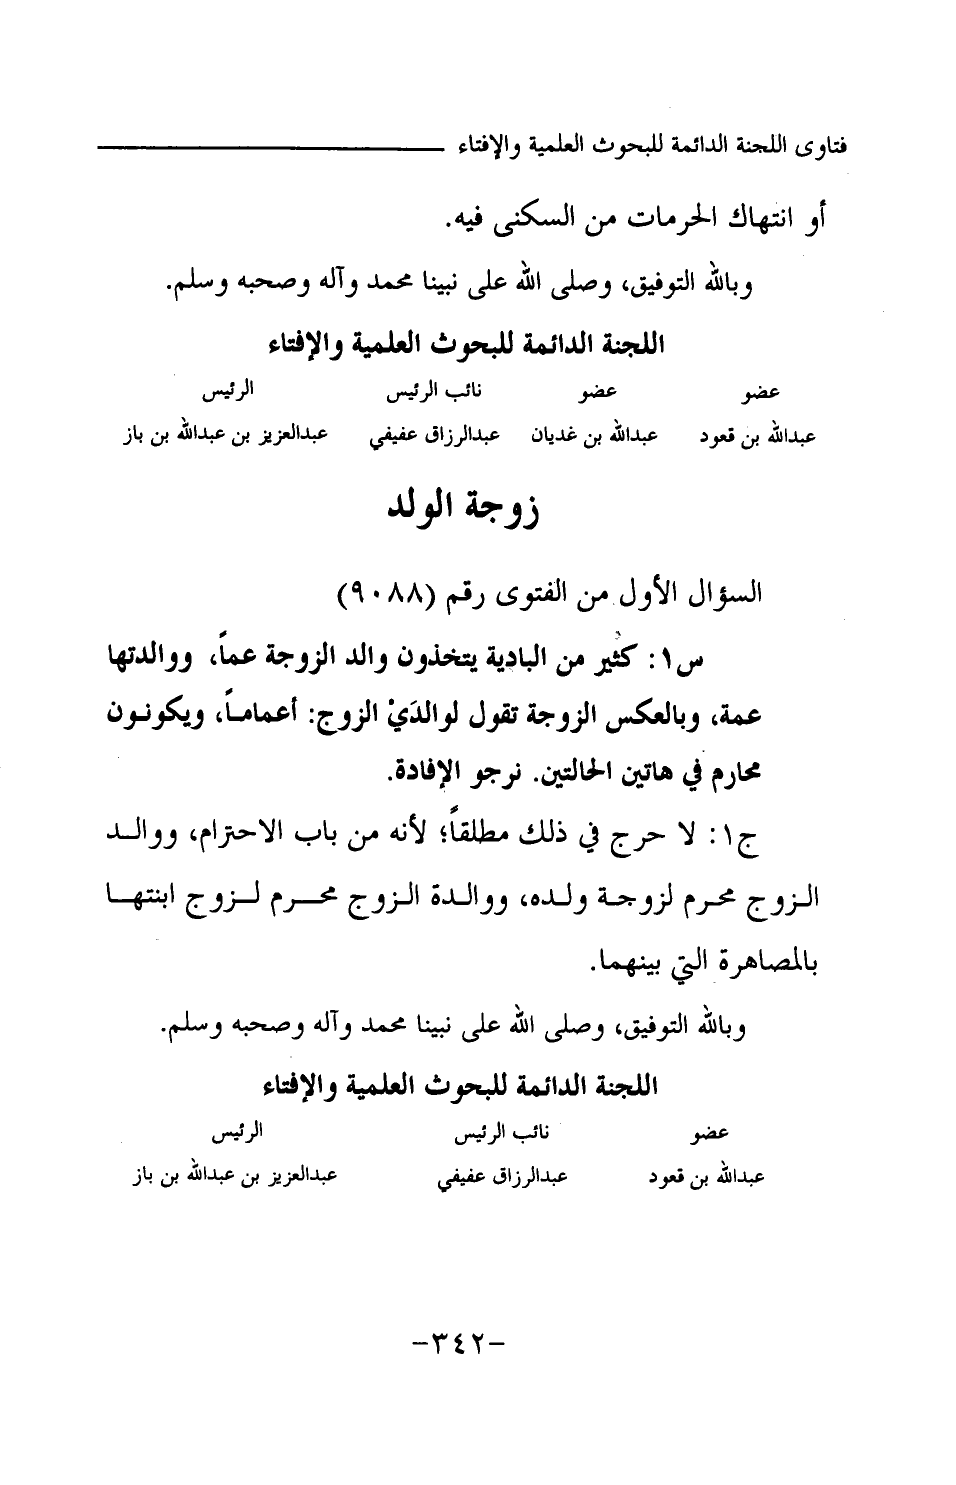 فتاوى اللجنة الدائمة للبحوث العلمية والإفتاء
أو انتهاك الحرمات من السكنى فيه.
وبالله التوفيق، وصلى الله على نبينا محمد وآله وصحبه وسلم.
اللجنة الدائمة للبحوث العلمية والإفتاء
عضو عضو نائب الرئيس الرئيس
عبدالله بن قعود عبدالله بن غديان عبدالرزاق عفيفي عبدالعزيز بن عبدالله بن باز
زوجة الولد
السؤال الأول من الفتوى رقم (٩٠٨٨)
س١: كثير من البادية يتخذون والد الزوجة عماً، ووالدتها
عمة، وبالعكس الزوجة تقول لوالدَيْ الزوج: أعماماً، ويكونون
محارم في هاتين الحالتين. نرجو الإفادة.
ج١: لا حرج في ذلك مطلقاً؛ لأنه من باب الاحترام، ووالد
الزوج محرم لزوجة ولده، ووالدة الزوج محرم لزوج ابنتها
بالمصاهرة التي بينهما.
وبالله التوفيق، وصلى الله على نبينا محمد وآله وصحبه وسلم.
اللجنة الدائمة للبحوث العلمية والإفتاء
عضو نائب الرئيس الرئيس
عبدالله بن قعود عبدالرزاق عفيفي عبدالعزيز بن عبدالله بن باز
-٣٤٢-